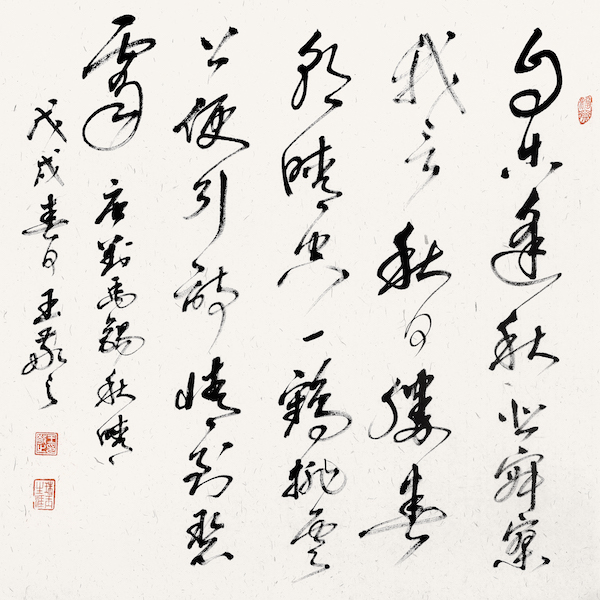 自古逢秋悲寂寥
我言秋日勝春
朝晴空一鶴排雲
上便引詩情到碧
霄
唐劉禹錫秋
戊戌春日王敬之